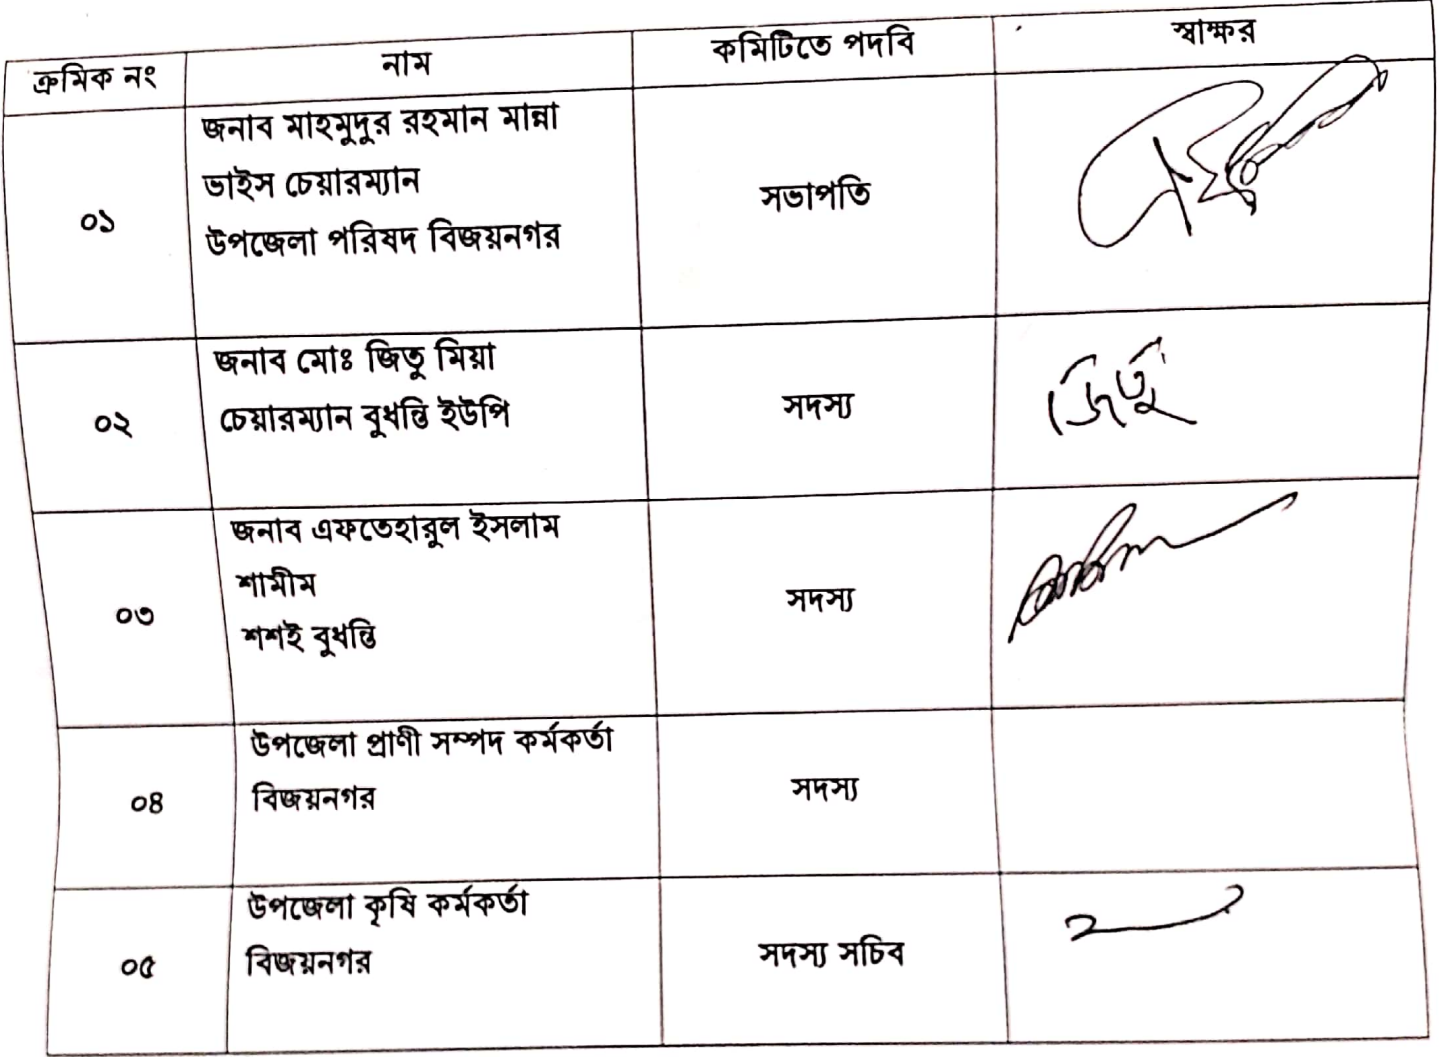 ক্রমিক নং নাম কমিটিতে পদবি স্বাক্ষর
জনাব মাহমুদুর রহমান মান্না
ভাইস চেয়ারম্যান
০১ উপজেলা পরিষদ বিজয়নগর সভাপতি
জনাব মোঃ জিতু মিয়া
০২ চেয়ারম্যান বুধন্তি ইউপি সদস্য জিতু
জনাব এফতেহারুল ইসলাম
শামীম
০৩ শশই বুধন্তি সদস্য
উপজেলা প্রাণী সম্পদ কর্মকর্তা
০৪ বিজয়নগর সদস্য
উপজেলা কৃষি কর্মকর্তা
০৫ বিজয়নগর সদস্য সচিব